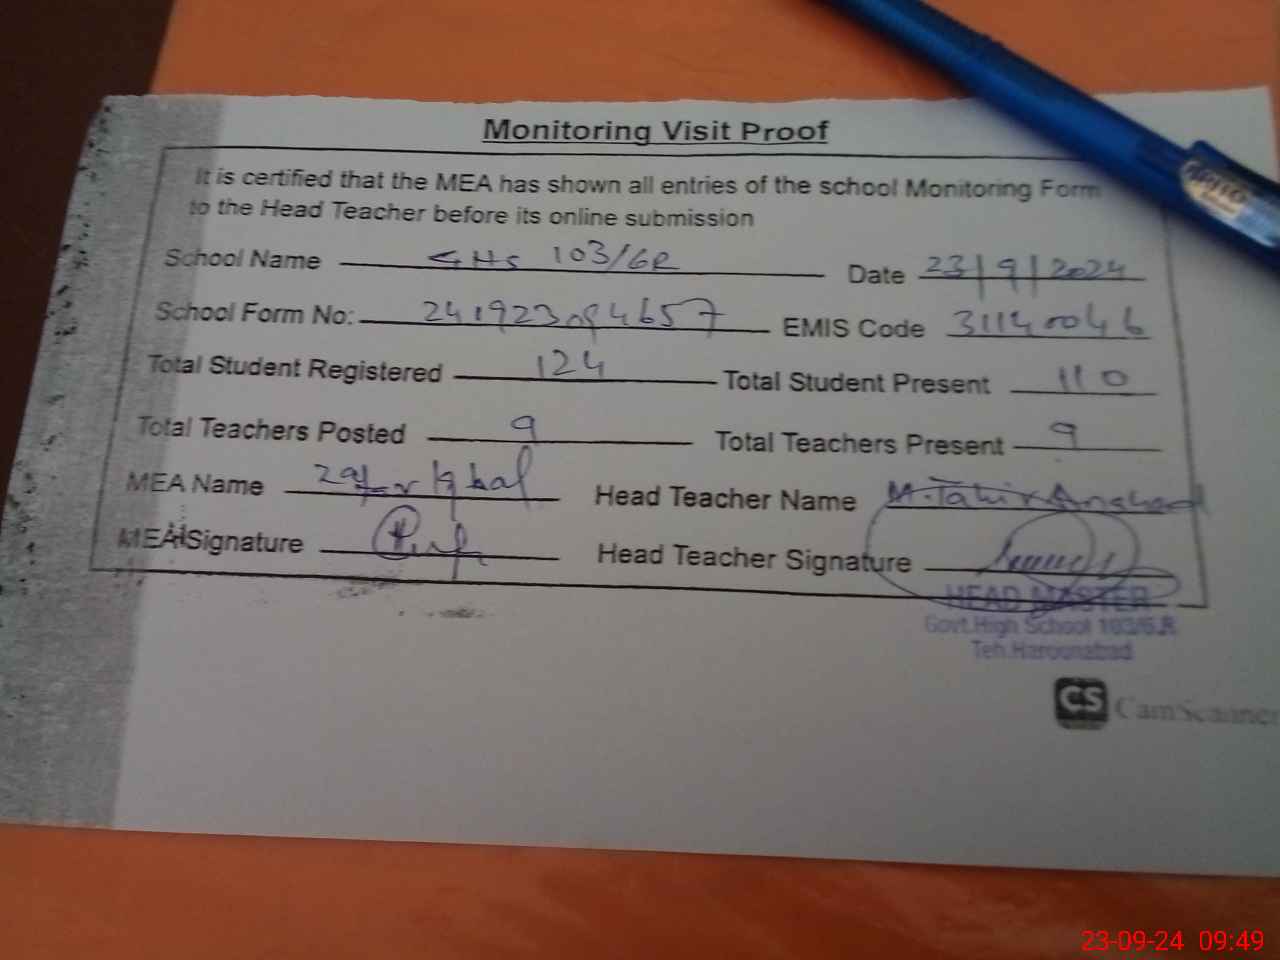 Monitoring Visit Proof
It is certified that the MEA has shown all entries of the school Monitoring Form
to the Head Teacher before its online submission
School Name GHS 103/6R Date 23/9/2024
School Form No: 241923094657 EMIS Code 31140046
Total Student Registered 124 Total Student Present 110
Total Teachers Posted 9 Total Teachers Present 9
MEA Name Zafar Iqbal Head Teacher Name M. Tahir
MEA Signature Head Teacher Signature
HEAD MASTER
Govt.High School 103/6.R
Teh.Harounabad
CS CamScanner
23-09-24 09:49